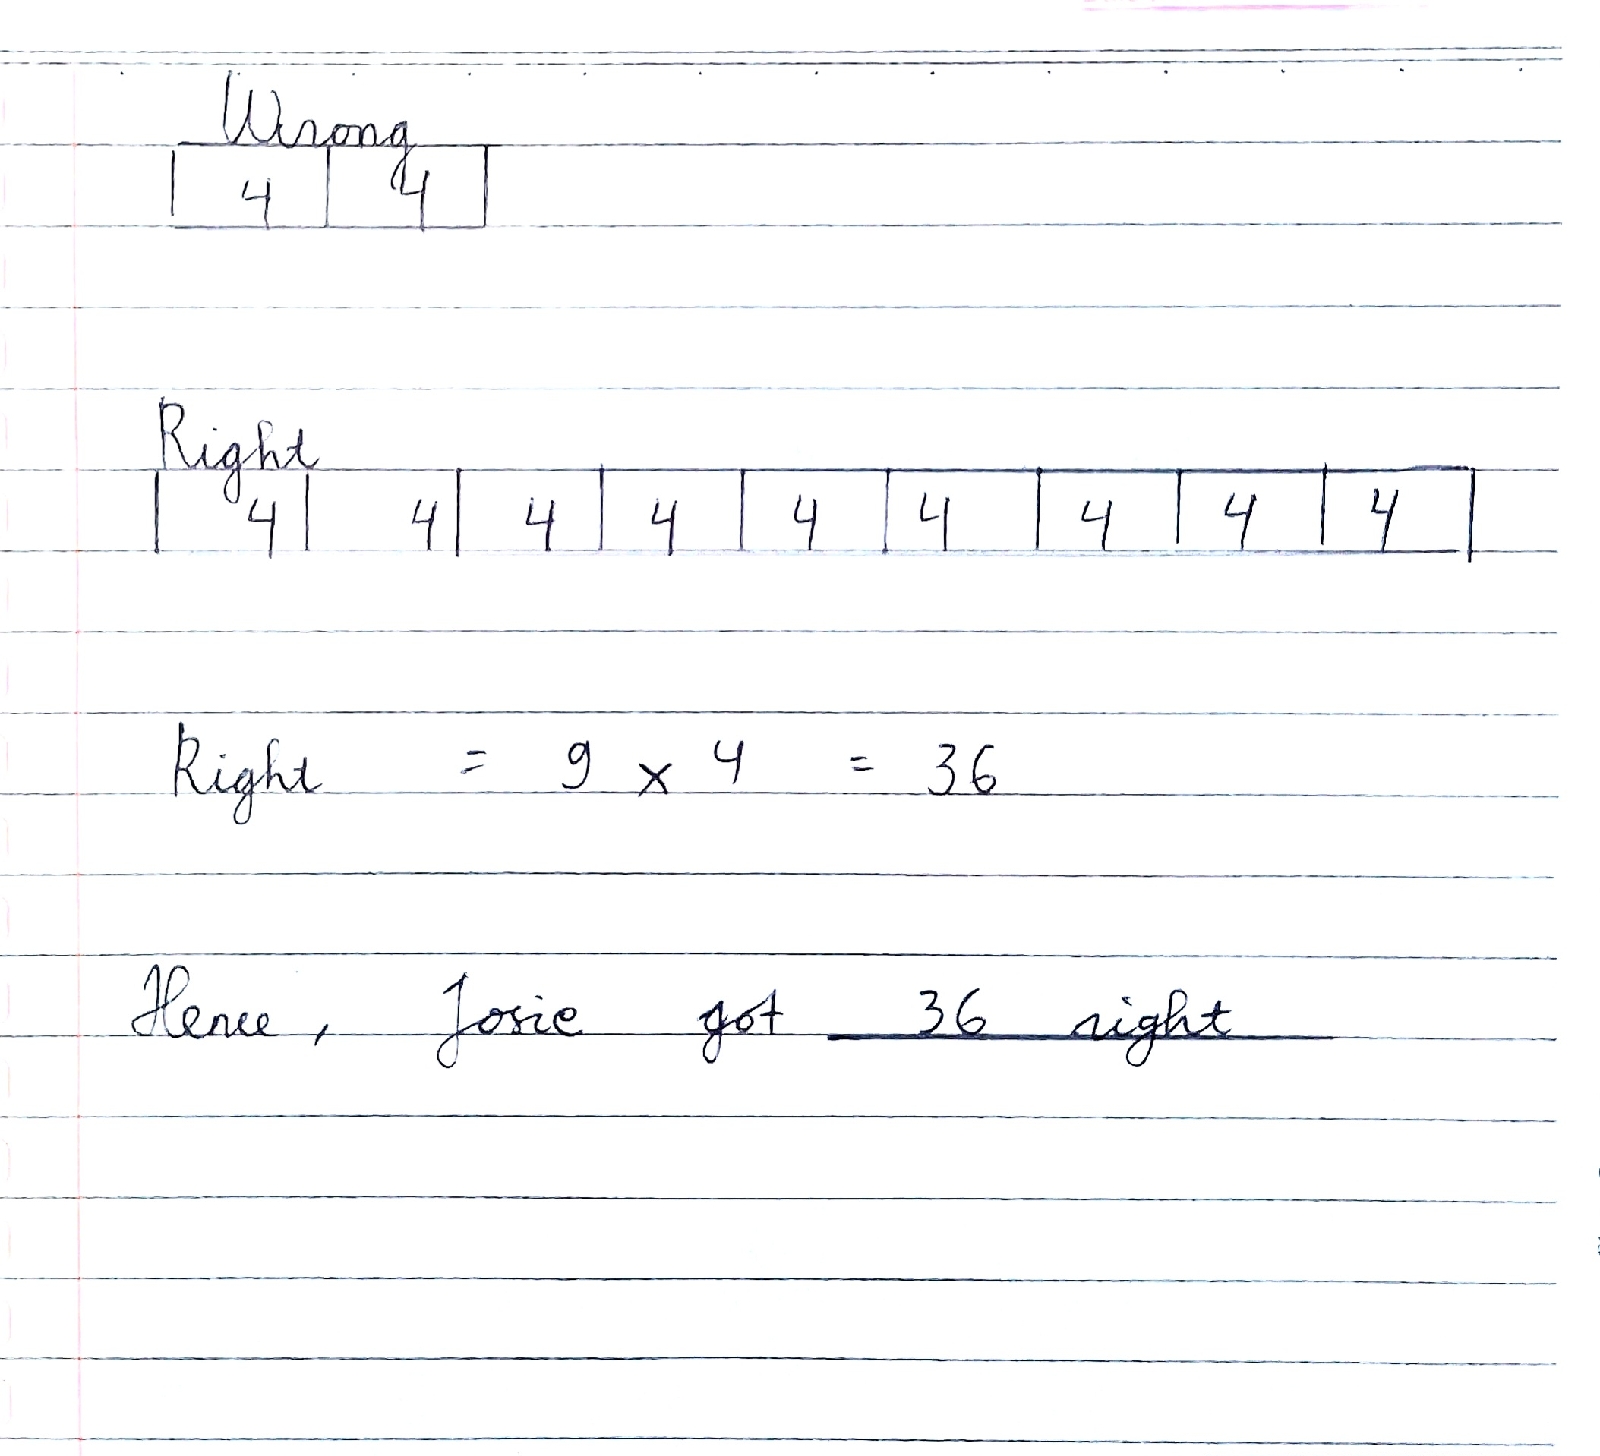 Wrong
4 4
Right
4 4 4 4 4 4 4 4 4
Right = 9 x 4 = 36
Hence, Josie got 36 right